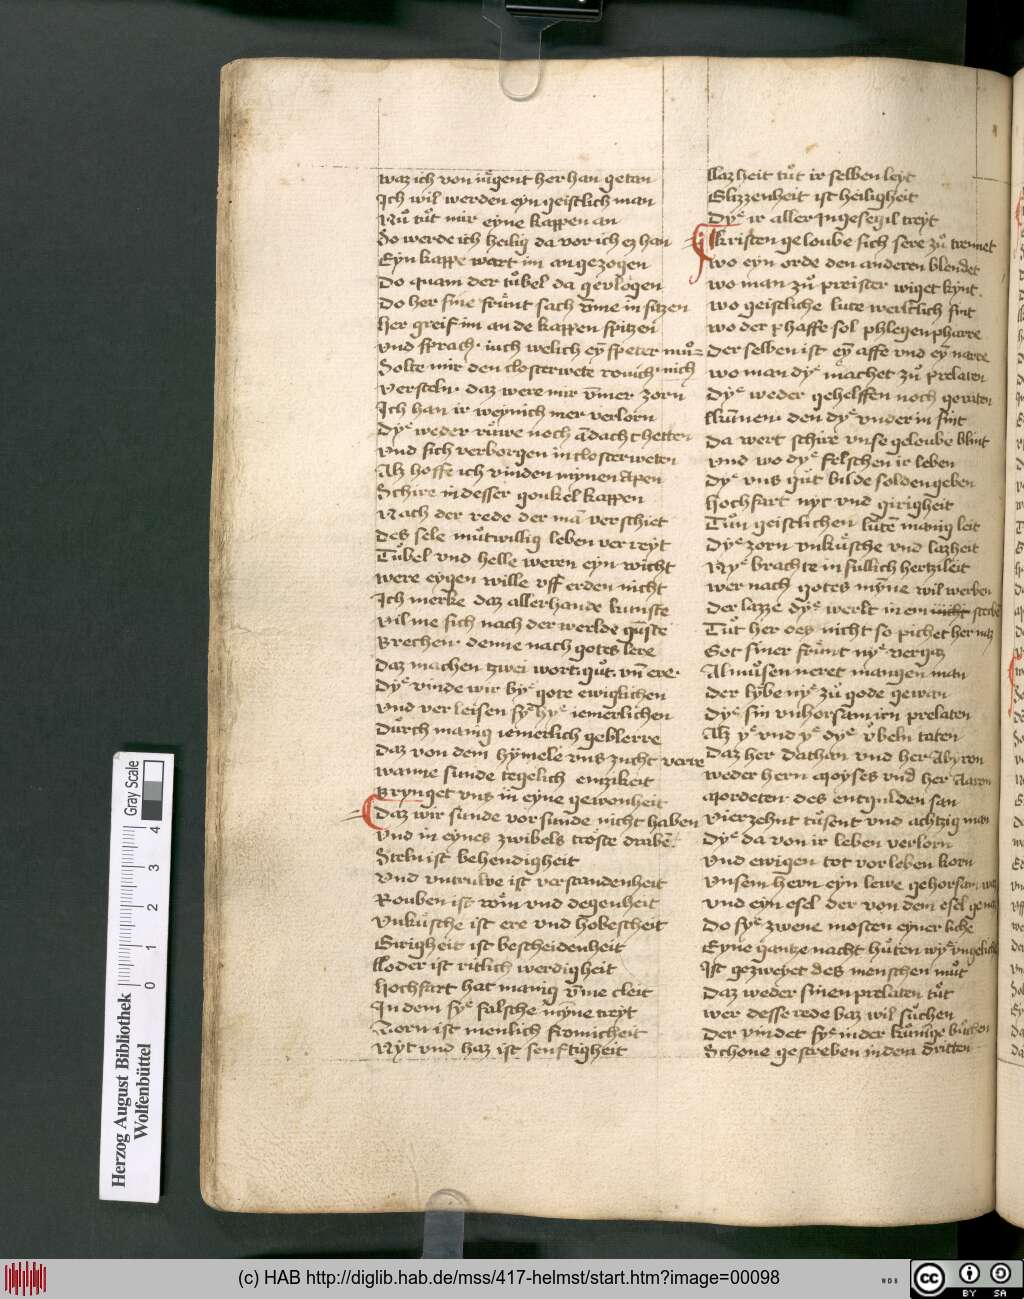 waz ich von iůgent her han getan
Ich wil werden eyn geistlich man
Nů tůt mir eyne kappen an
So werde ich heilig da vor ich ez han
Eyn kappe wart im an gezogen
Do quam der tůbel da gevlogen
Do her sine frůnt sach v̄me in sitzen
her greif im an de kappen spitzen
vnd sprach· iach welich ey̅ speter mů=
Solte mir den closterwete rouich· mich
versteln· daz were mir v̄mer zorn
Ich han ir weynich mer verlorn
Dyͤ weder růwe noch ādacht hetten
vnd sich verborgen in closterweten
Alz hoffe ich vinden mynen apen
Schire in desser goukel kappen
Nach der rede der mā verschiet
des sele můtwillig leben ver reyt
Tůbel vnd helle weren eyn wicht
were eygen wille vff erden nicht
Ich merke daz allerhande kunste
vil me sich nach der werlde gūste
Brechen· denne nach gotes lere
daz machen zwei wort· gůt· vn̄ ere·
dyͤ vinde wir byͤ gote ewiglichen
vnd ver leisen syͤ hyͤ iemerlichen
Důrch manig iemerlich geblerre
daz von dem hymele vns zucht verre
wanne sunde tegelich emzikeit
Brynget vns in eyne gewenheit
daz wir sunde vor sunde nicht haben
vnd in eynes zwibels troste drabē
Steln ist behendigheit
vnd vntruwe ist verstandenheit
Rouben ist wōn vnd degenheit
vnkůsche ist ere vnd hobescheit
Girigheit ist bescheidenheit
Lloder ist ritlich werdigheit
hochfart hat manig v̄me cleit
In dem syͤ falsche myne treyt
Torn ist menlich fromicheit
Nyt vnd haz ist senftigheit
Llazheit tůt ir selben leyt
Glizzenheit ist heiligheit
Dyͤ ir aller Ingesegil treyt
Kristen geloube sich sere zů trennet
wo eyn orde den anderen blendet
wo man zů preister wiget kynt
wo geistliche lute werltlich sint
wo der phaffe sol phlegen pharre
der selben ist ey̅ affe vnd ey̅ narre
wo man dyͤ machet zů prelaten
dyͤ weder gehelffen noch geraten
Kūnnen· den dyͤ vnder in sint
da wert schire vnse geloube blint
vnd wo dyͤ felschen ir leben
dyͤ vns gůt bilde solden geben
hochfart nyt vnd girigheit
Tůn geistlichen lutē manig leit
dyͤ zorn vnkůsche vnd lazheit
Nyͤ brachte in sullich hertzileit
wer nach gotes myne wil werben
der lazze dyͤ werlt in em nicht sterbē
Tůt her des nicht so pichet her naz
Got siner frůnt nyͤ vergaz
Almůsen neret mangen man
der lybe nyͤ zů gode gewan
dyͤ sin vnhorsam irn prelaten
Alz yͤ vnd yͤ dyͤ v̊beln taten
daz her dathan vnd her Abyron
weder hern Moyses vnd her Aaron
Mordeten· des entgulden san
vierzehnt tůsent vnd achtzig man
dyͤ da von ir leben verlorn
vnd ewigen tot vor leben korn
vnsem hern eyn lewe gehorsam
vnd eyn esel der von dem esel
do syͤ zwene mosten eyner liche
Eyne gantze nacht hůten wyͤ vngeliche
Ist gezweyet des menschen můt
daz weder sinen prelaten tůt
wer desse rede baz wil sůchen
der vindet syͤ in der kůnige bůchen
Schone geschreben in dem dritten
Gray Scale
0 1 2 3 4
Herzog August Bibliothek
Wolfenbüttel
(c) HAB http://diglib.hab.de/mss/417-helmst/start.htm?image=00098
WDB
cc BY SA